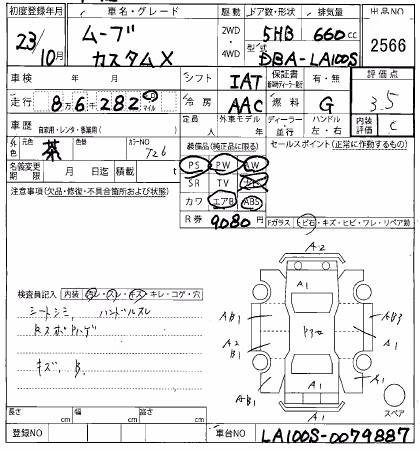 初度登録年月 車名・グレード 駆動 ドア数・形状 排気量 出品NO
23/10月 ムーブ カスタムX 2WD 4WD 5HB 660cc 2566
型式 DBA-LA100S
車検 年 月 シフト IAT 保証書 有・無 評価点
走行 8万6千282 km マイル 冷房 AAC 燃料 G 3.5
車歴 自家用・レンタ・事業用( ) 定員 人 外車モデル 年 ディーラー 並行 ハンドル 左・右 内装評価 C
外色 元色 茶 色替 カラーNO 726 装備品(純正品に限る) セールスポイント(正常に作動するもの)
名義変更期限 月 日迄 積載 t PS PW AW
注意事項(欠品・修復・不具合箇所および状態) SR TV
カワ エアB ABS
R券 9,080円 Fガラス トビ石・キズ・ヒビ・ワレ・リペア跡
A2
検査員記入 内装 汚レ・スレ・キズ・キレ・コゲ・穴 A1
シートシミ、ハンドルスレ AB1 AB3
A2 B1 A1
キズ、B. AB1 A1 A1
A1 スペア
長さ cm 幅 cm 高さ cm
登録NO 車台NO LA100S-0079887